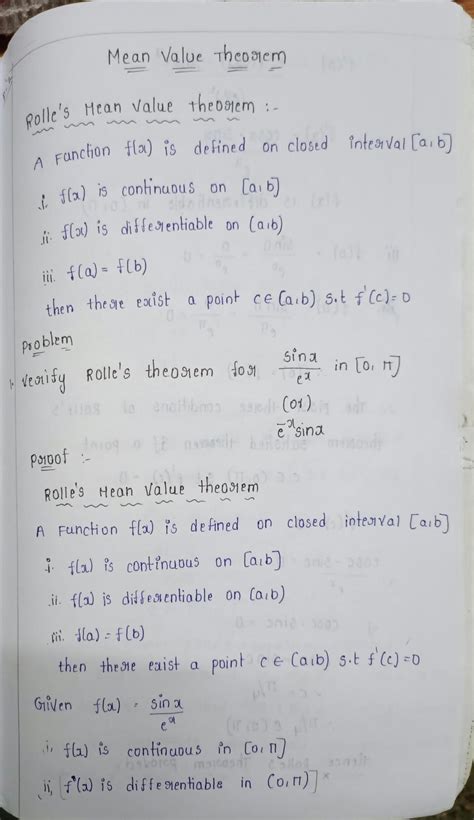 Mean Value Theorem
Rolle's Mean Value theorem :-
A Function f(x) is defined on closed interval [a,b]
i. f(x) is continuous on [a,b]
ii. f(x) is differentiable on (a,b)
iii. f(a) = f(b)
then there exist a point c∈(a,b) s.t f'(c)=0
Problem
1. Verify Rolle's theorem for sinx/e^x in [0,π]
(or)
e^-x sinx
Proof :-
Rolle's Mean Value theorem
A Function f(x) is defined on closed interval [a,b]
i. f(x) is continuous on [a,b]
ii. f(x) is differentiable on (a,b)
iii. f(a) = f(b)
then there exist a point c ∈ (a,b) s.t f'(c)=0
Given f(x) = sinx/e^x
i, f(x) is continuous in [0,π]
ii, [f'(x) is differentiable in (0,π)] ×